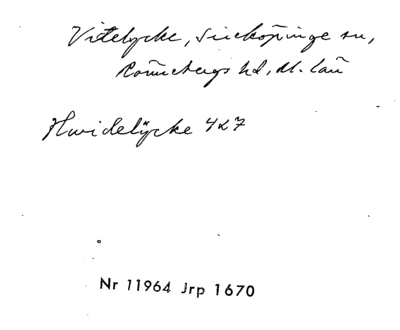 Vitelycke, Simköpinge sn,
Rönnebergs hd, M. län
Hwidelÿcke 427
Nr 11964 Jrp 1670